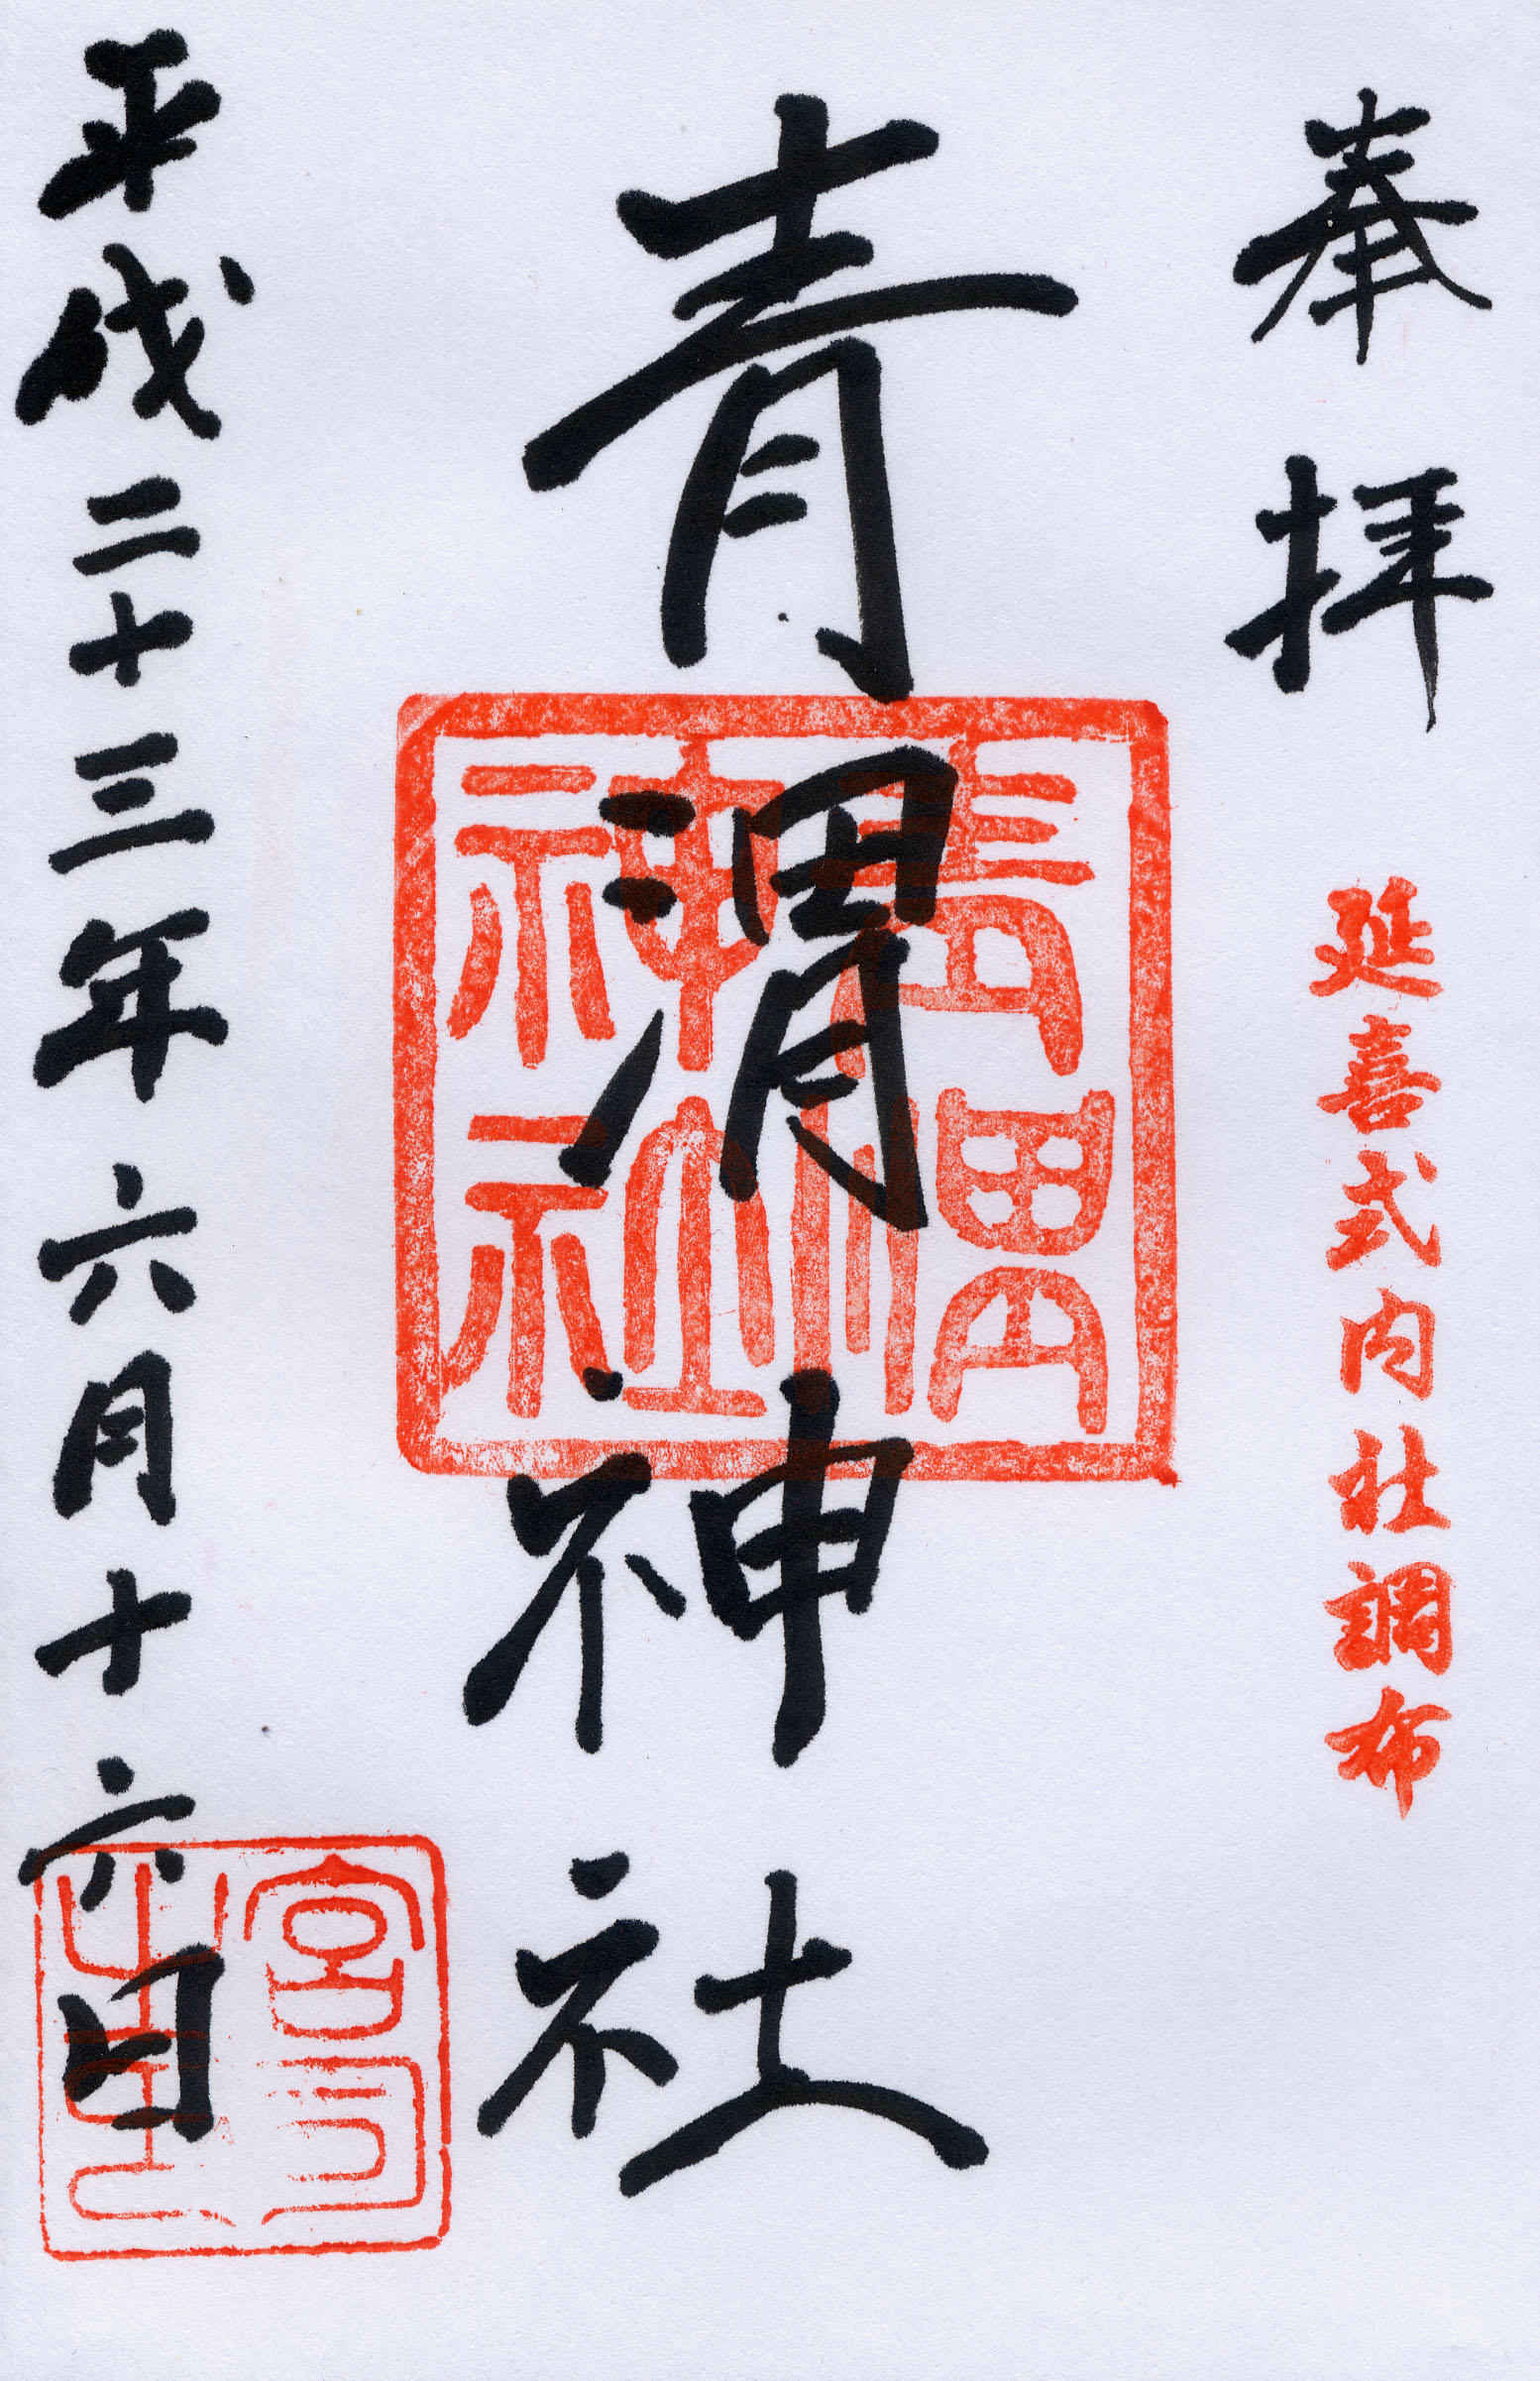 奉拝
延喜式内社調布
青渭神社
青渭神社
平成二十三年六月十六日